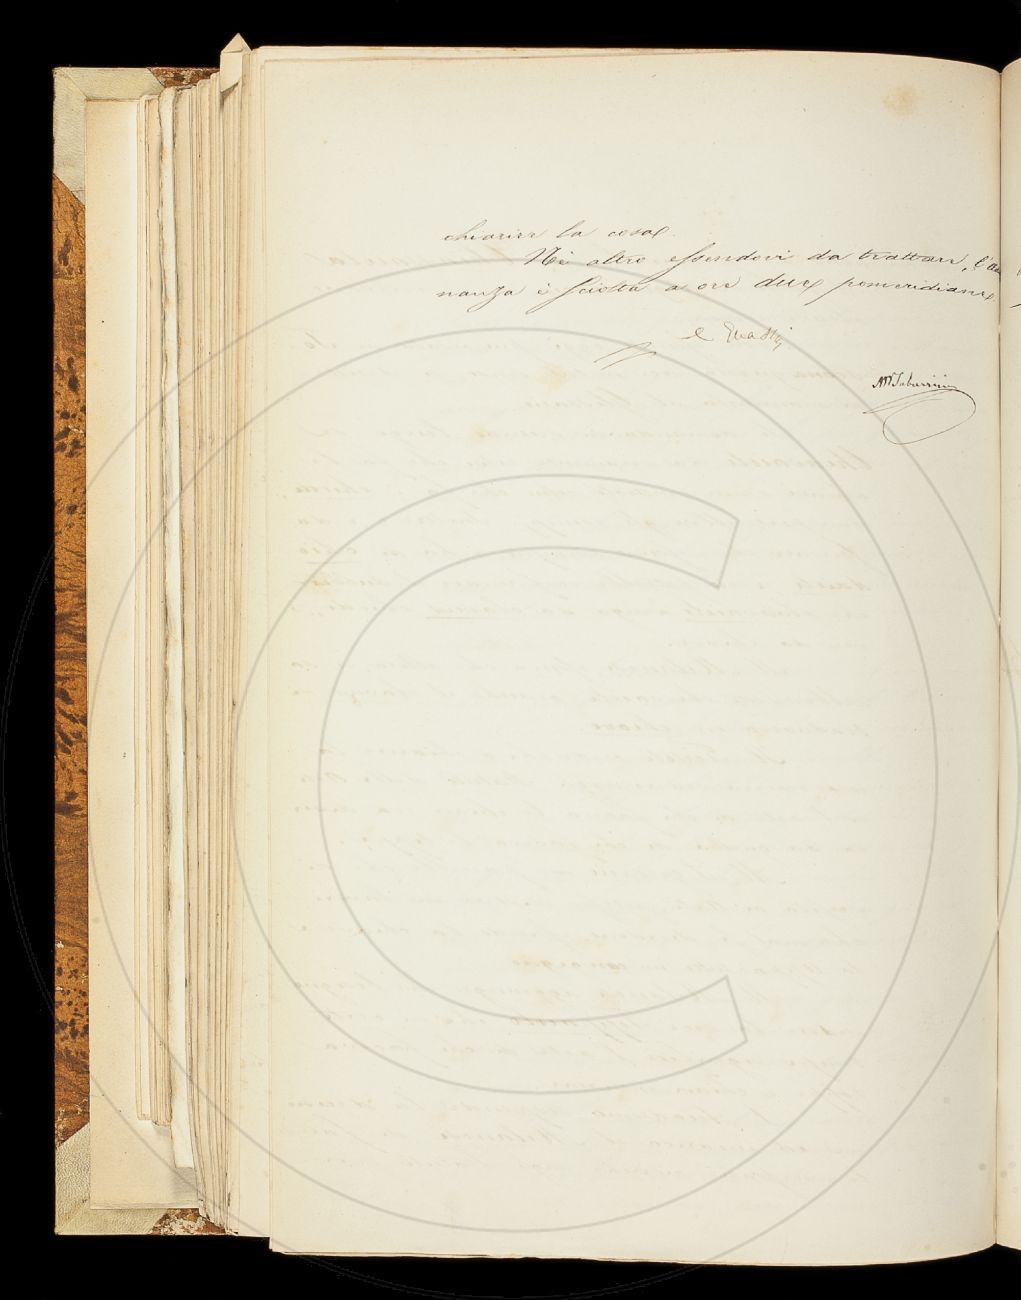 chiarire la cosa.
Nè altro essendovi da trattare, l'adu
nanza è sciolta a ore due pomeridiane.
M Tabarrini